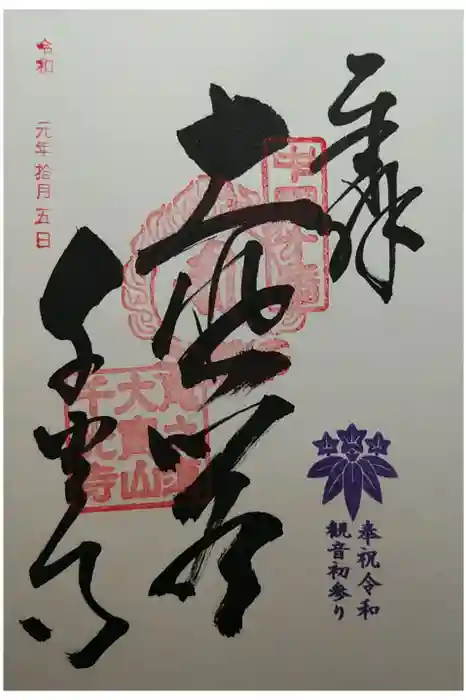 奉拝
中国十番
奉祝令和
観音初参り
大悲閣
大寶山
千光寺
千光寺
令和 元年 拾月 五日